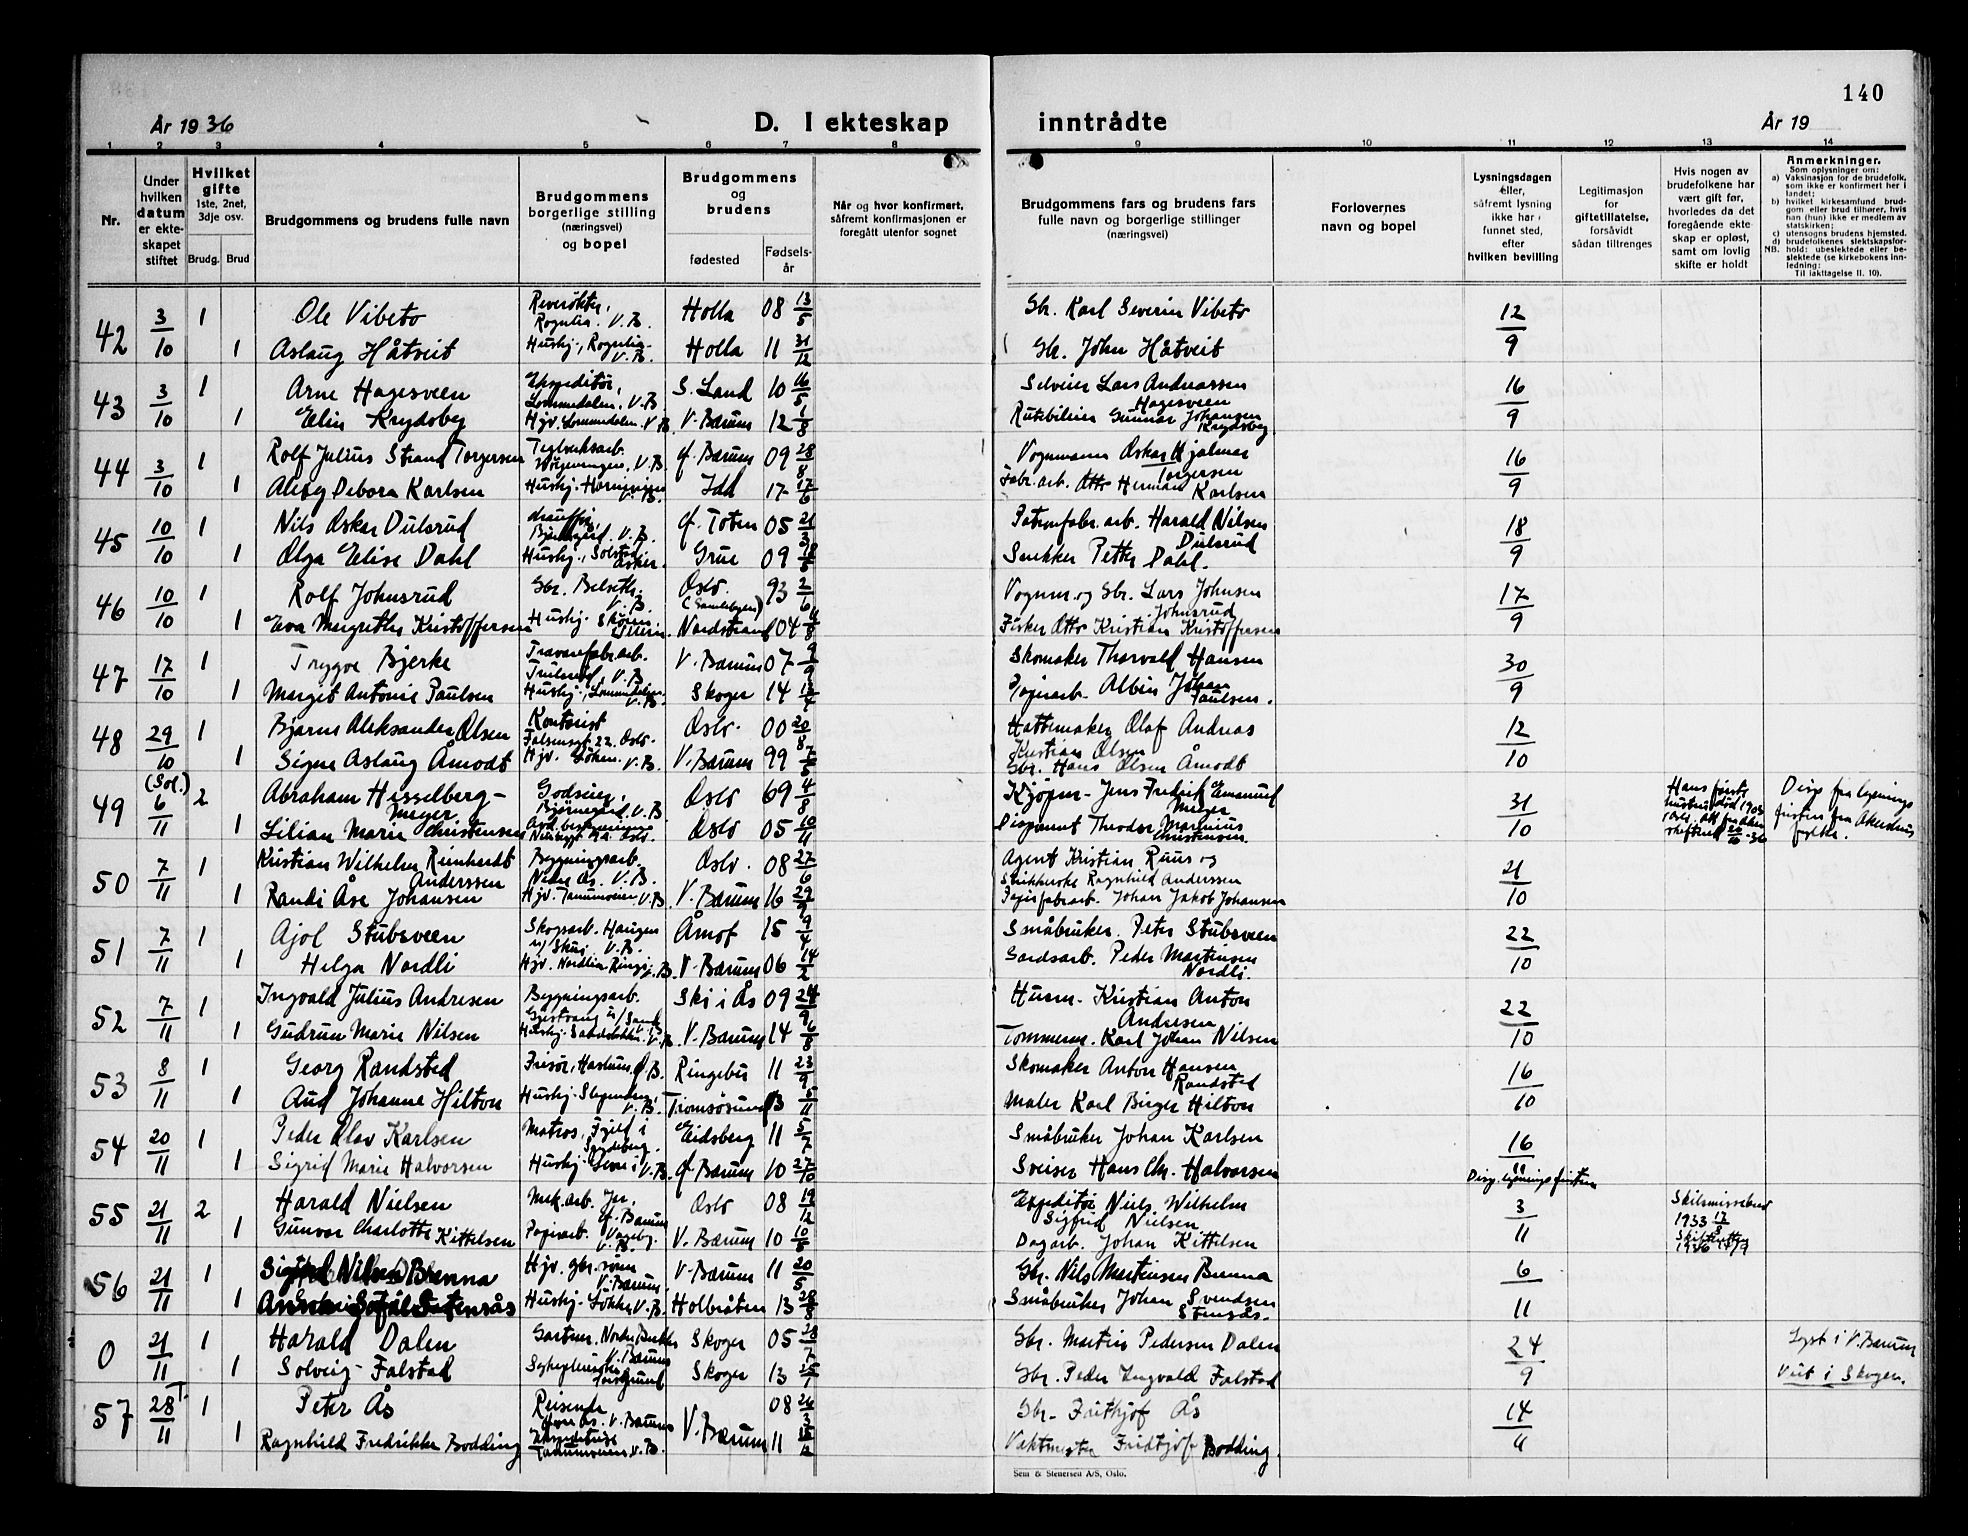 140
År 1936
D. I ekteskap inntrådte
År 19
1 2 3 4 5 6 7 8 9 10 11 12 13 14
Nr.
Under hvilken datum er ekteskapet stiftet
Hvilket gifte
1ste, 2net, 3dje osv.
Brudg. Brud
Brudgommens og brudens fulle navn
Brudgommens borgerlige stilling (næringsvei) og bopel
Brudgommens og brudens
fødested
Fødsels-år
Når og hvor konfirmert, såfremt konfirmasjonen er foregått utenfor sognet
Brudgommens fars og brudens fars fulle navn og borgerlige stillinger (næringsvei)
Forlovernes navn og bopel
Lysningsdagen eller, såfremt lysning ikke har funnet sted, efter hvilken bevilling
Legitimasjon for giftetillatelse, forsåvidt sådan tiltrenges
Hvis nogen av brudefolkene har vært gift før, hvorledes da det foregående ekteskap er opløst, samt om lovlig skifte er holdt
Anmerkninger.
Som oplysninger om:
a) Vaksinasjon for de brudefolk, som ikke er konfirmert her i landet;
b) hvilket kirkesamfund brudgom eller brud tilhører, hvis han (hun) ikke er medlem av statskirken;
c) utensogns brudens hjemsted.
d) brudefolkenes slektskapsforhold: ubeslektede eller beslektede (se kirkebokens innledning:
NB.
Til iakttagelse II. 10).
42 3/10 1 Ole Vibeto V.B. Holla 08 13/5 Gbr. Karl Severin Vibeto 12/9
1 Aslaug Håtveit Hushj., V.B. Holla 11 31/12 Gbr. John Håtveit
43 3/10 1 Arne Hagesveen Ekspeditør, Lommedalen, V.B. S. Land 10 16/5 Selveier Lars Andreassen Hagesveen 16/9
1 Elin Krydsby Hjv. Lommedalen. V.B. V. Bærum 12 1/8 Rutebileier Gunnar Johansen Krydsby
44 3/10 1 Rolf Julius Strand Torgersen Teglverksarb. V.B. Ø. Bærum 09 28/8 Vognmann Oskar Hjalmar Torgersen 16/9
1 Debora Karlsen Hushj. V.B. Idd 17 17/6 Fabr.arb. Otto Herman Karlsen
45 10/10 1 Nils Oskar Dulsrud V.B. Ø. Toten 05 21/3 Patronfabr.arb. Harald Nilsen Dulsrud 18/9
1 Olga Elise Dahl Hushj., Solstad. Asker. Grue 09 Snekker Petter Dahl.
46 10/10 1 Rolf Johnsrud Gbr. V.B. Oslo. (Gamlebyen) 93 2/6 Vognm. og Gbr. Lars Johnsen Johnsrud 17/9
1 Eva Margrethe Kristoffersen Hushj. Nordstrand 04 Fisker Otto Kristian Kristoffersen
47 17/10 1 Trygve Bjerke Trevarefabr.arb. V.B. V. Bærum 07 9/9 Skomaker Thorvald Hansen 30/9
1 Margit Antonie Paulsen Hushj., Lommedalen V.B. Skoger 14 Papirarb. Albin Johan Paulsen.
48 29/10 1 Bjarne Aleksander Olsen Kontorist Falsensgt. 22. Oslo. Oslo. 00 20/8 Hattemaker Olaf Andreas Kristian Olsen 12/10
1 Signe Aslaug Åmodt Hjv. Løken. V.B. V. Bærum 99 7/5 Gbr. Hans Olsen Åmodt
49 (Sol.) 6/11 2 Abraham Hesselberg-Meyer Godseier, V.B. Oslo 69 4/8 Kjøpm. Jens Fredrik Emanuel Meyer 31/10
1 Lilian Marie Christensen Oslo 05 10/11 Disponent Theodor Marinius Christensen.
Hans første hustru død
Disp fra lysnings fristen fra Akershus fylke.
50 7/11 1 Kristian Wilhelm Reinhardt Anderssen Bygningsarb. Nedre Ås. V.B. Oslo. 08 27/6 Agent Kristian Ruus og Ragnhild Anderssen 21/10
1 Randi Åse Johansen Hjv. Tanumveien V.B. V. Bærum 16 29/9 Papirfabrarb. Johan Jakob Johansen
51 7/11 1 Ajol Stubsveen Skogsarb. Haugen V.B. Åmot 15 9/4 Småbruker. Peter Stubsveen 22/10
1 Helga Nordli Hjv. Nordlia V.B. V. Bærum 06 14/2 Gårdsarb. Peder Martinsen Nordli.
52 7/11 1 Ingvald Julius Andresen Bygningsarb. Ski i Ås 09 24/9 Husm. Kristian Anton Andersen 22/10
1 Gudrun Marie Nilsen Hushj. V.B. V. Bærum 14 6/8 Tømmerm. Karl Johan Nilsen
53 8/11 1 Georg Randsted Frisør, Haslum, Ø.B. Ringebu 11 23/9 Skomaker Anton Hansen Randsted 16/10
1 Aud Johanne Hilton Hushj. V.B. Tromsøsund 13 Maler Karl Birger Hilton
54 20/11 1 Peder Olav Karlsen Matros, Eidsberg 11 5/7 Småbruker Johan Karlsen 16/11
1 Sigrid Marie Halvorsen Hushj. V.B. Ø. Bærum 10 27/10 Sveiser Hans Chr. Halvorsen
Disp. lysningsfristen
55 21/11 2 Harald Nielsen Mek.arb. Ø. Bærum Oslo 08 19/12 Expeditør Niels Wilhelm Sigfrid Nielsen 3/11
1 Gunvor Charlotte Kittelsen Papirarb. V.B. V. Bærum 10 10/5 Dagarb. Johan Kittelsen
Skilsmissebev 1933
56 21/11 1 Nilsen Brenna Hjv. gbr.sønn V. Bærum V. Bærum 11 20/5 Gbr. Nils Martinsen Brenna 6/11
1 Hushj. Løkke, V.B. Holbråten 13 28/8 Småbruker Johan Svendsen Stensås.
0 21/11 1 Harald Dalen Gartner. V. Bærum Skoger 05 28/7 Gbr. Martin Pedersen Dalen 24/9 Lyst i V. Bærum
1 Solveig Falstad Skoger 13 25/1 Gbr. Peder Ingvald Falstad Viet i Skoger.
57 28/11 1 Peter Ås Reisende V. Bærum V. Bærum 08 26/3 Gbr. Fritjof Ås 14/11
1 Ragnhild Fredrikke Bødding Tanumveien V.B. 11 Vaktmester Fridtjof Bødding.
Sem & Stenersen A/S, Oslo.